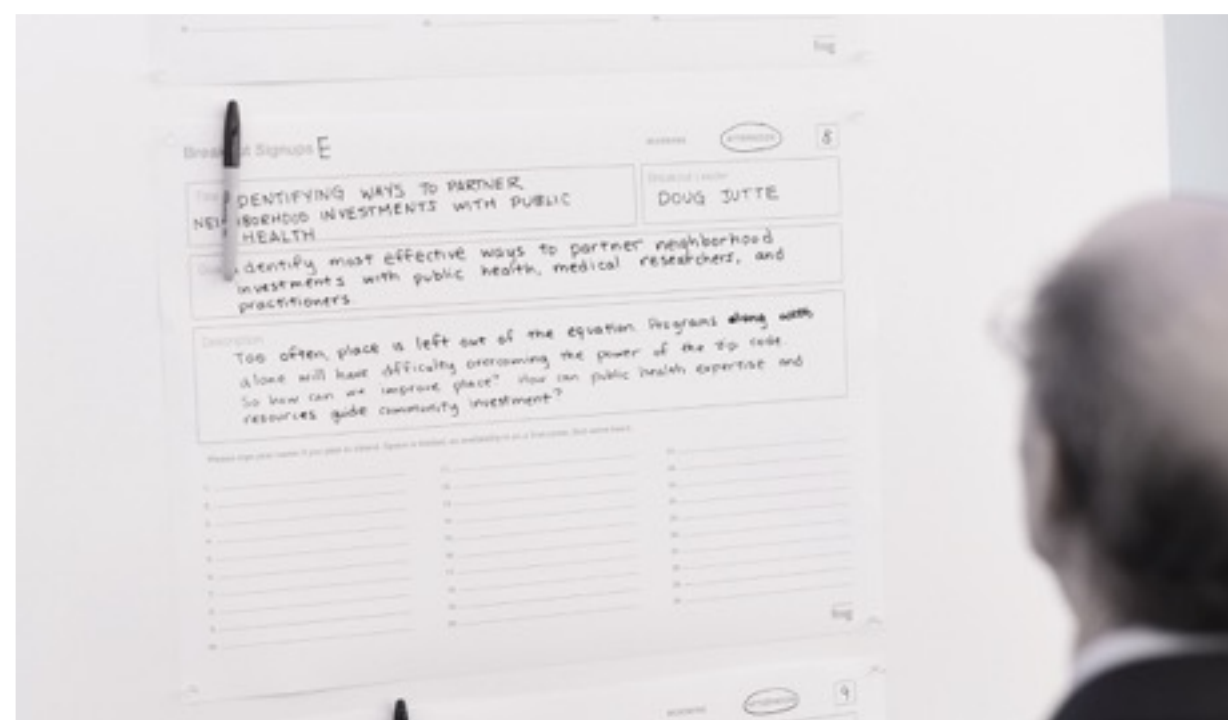 hug
Signups E
AFTERNOON 8
DENTIFYING WAYS TO PARTNER
NEI BORHOOD INVESTMENTS WITH PUBLIC
HEALTH
Breakout Leader
DOUG JUTTE
identify most effective ways to partner neighborhood
investments with public health, medical researchers, and
practitioners
Description
Too often, place is left out of the equation. Programs
alone will have difficulty overcoming the power of the zip code.
So how can we improve place? How can public health expertise and
resources guide community investment?
hug
9